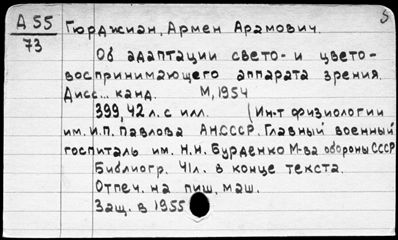 5
А 55
73
Гюрджиан, Армен Арамович.
Об адаптации свето- и цвето-
воспринимающего аппарата зрения.
Дисс... канд. М, 1954
399, 42 л. с илл. (Ин-т физиологии
им. И.П. Павлова АН СССР. Главный военный
госпиталь им. Н.Н. Бурденко М-ва обороны СССР
Библиогр. 41 л. в конце текста.
Отпеч. на пиш. маш.
Защ. в 1955